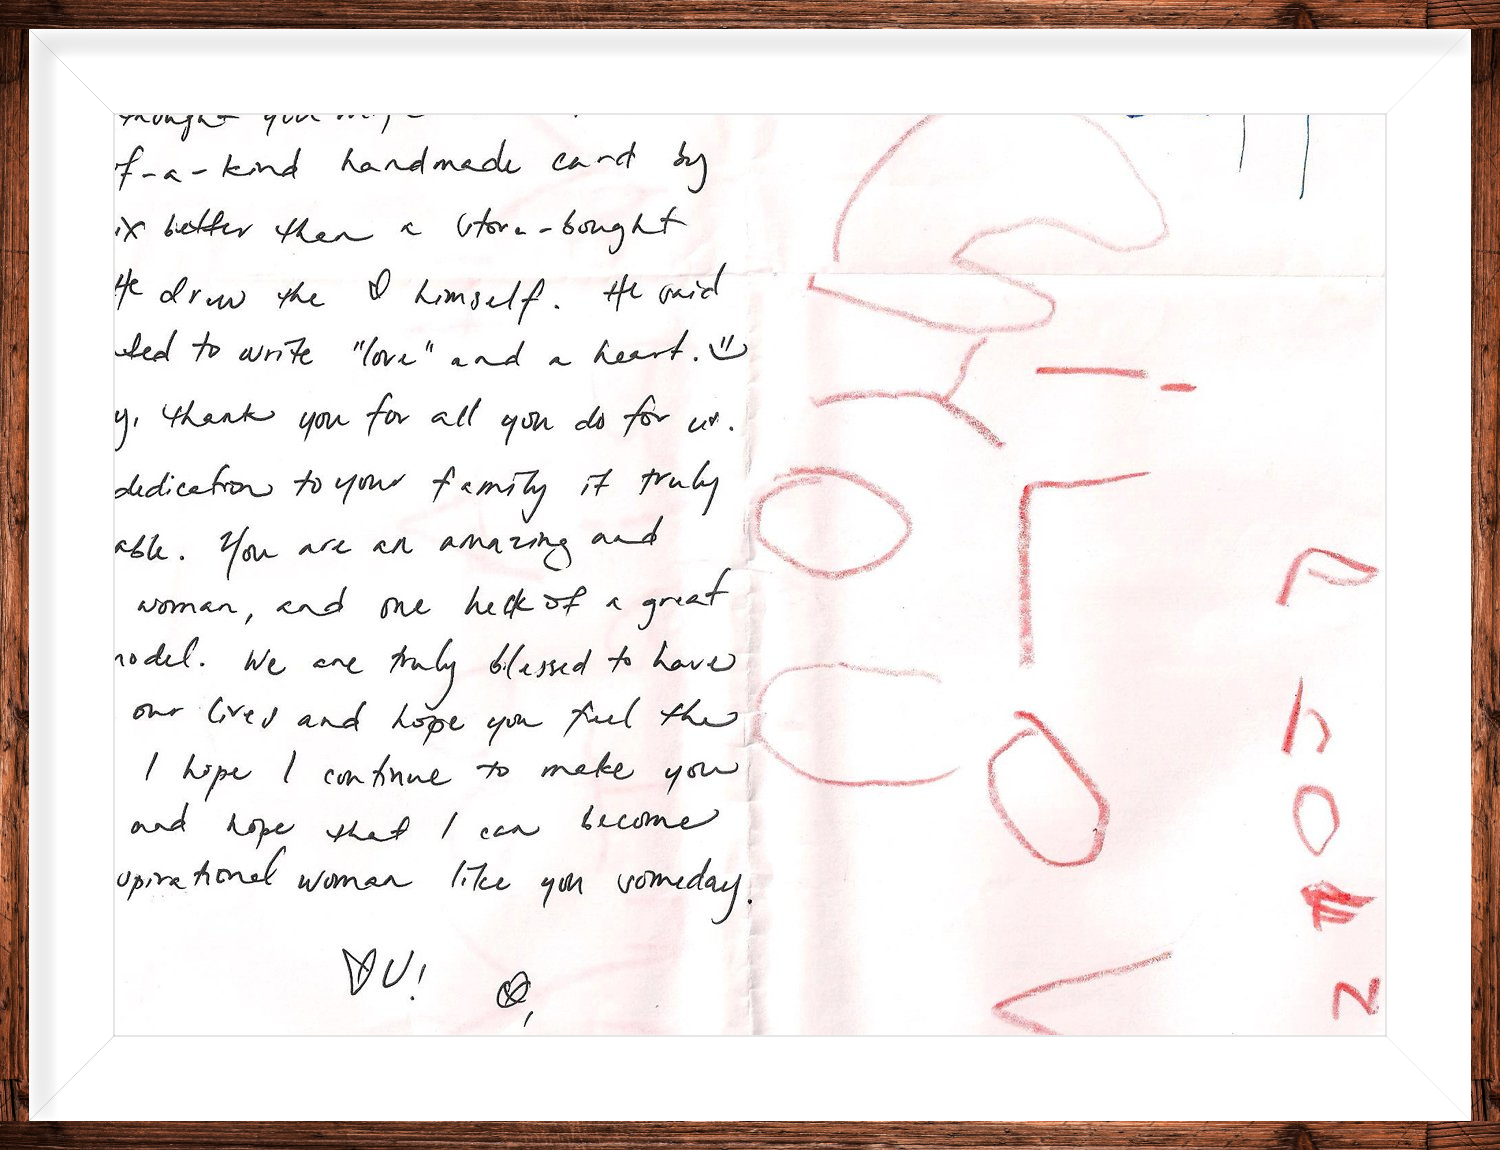 thought you
f-a-kind handmade card by
better than a store-bought
He drew the ♡ himself. He said
to write "love" and a heart.
y, thank you for all you do for us.
dedication to your family is truly
able. You are an amazing and
woman, and one heck of a great
model. We are truly blessed to have
our lives and hope you feel the
I hope I continue to make you
and hope that I can become
spirational woman like you someday.
♡ U!